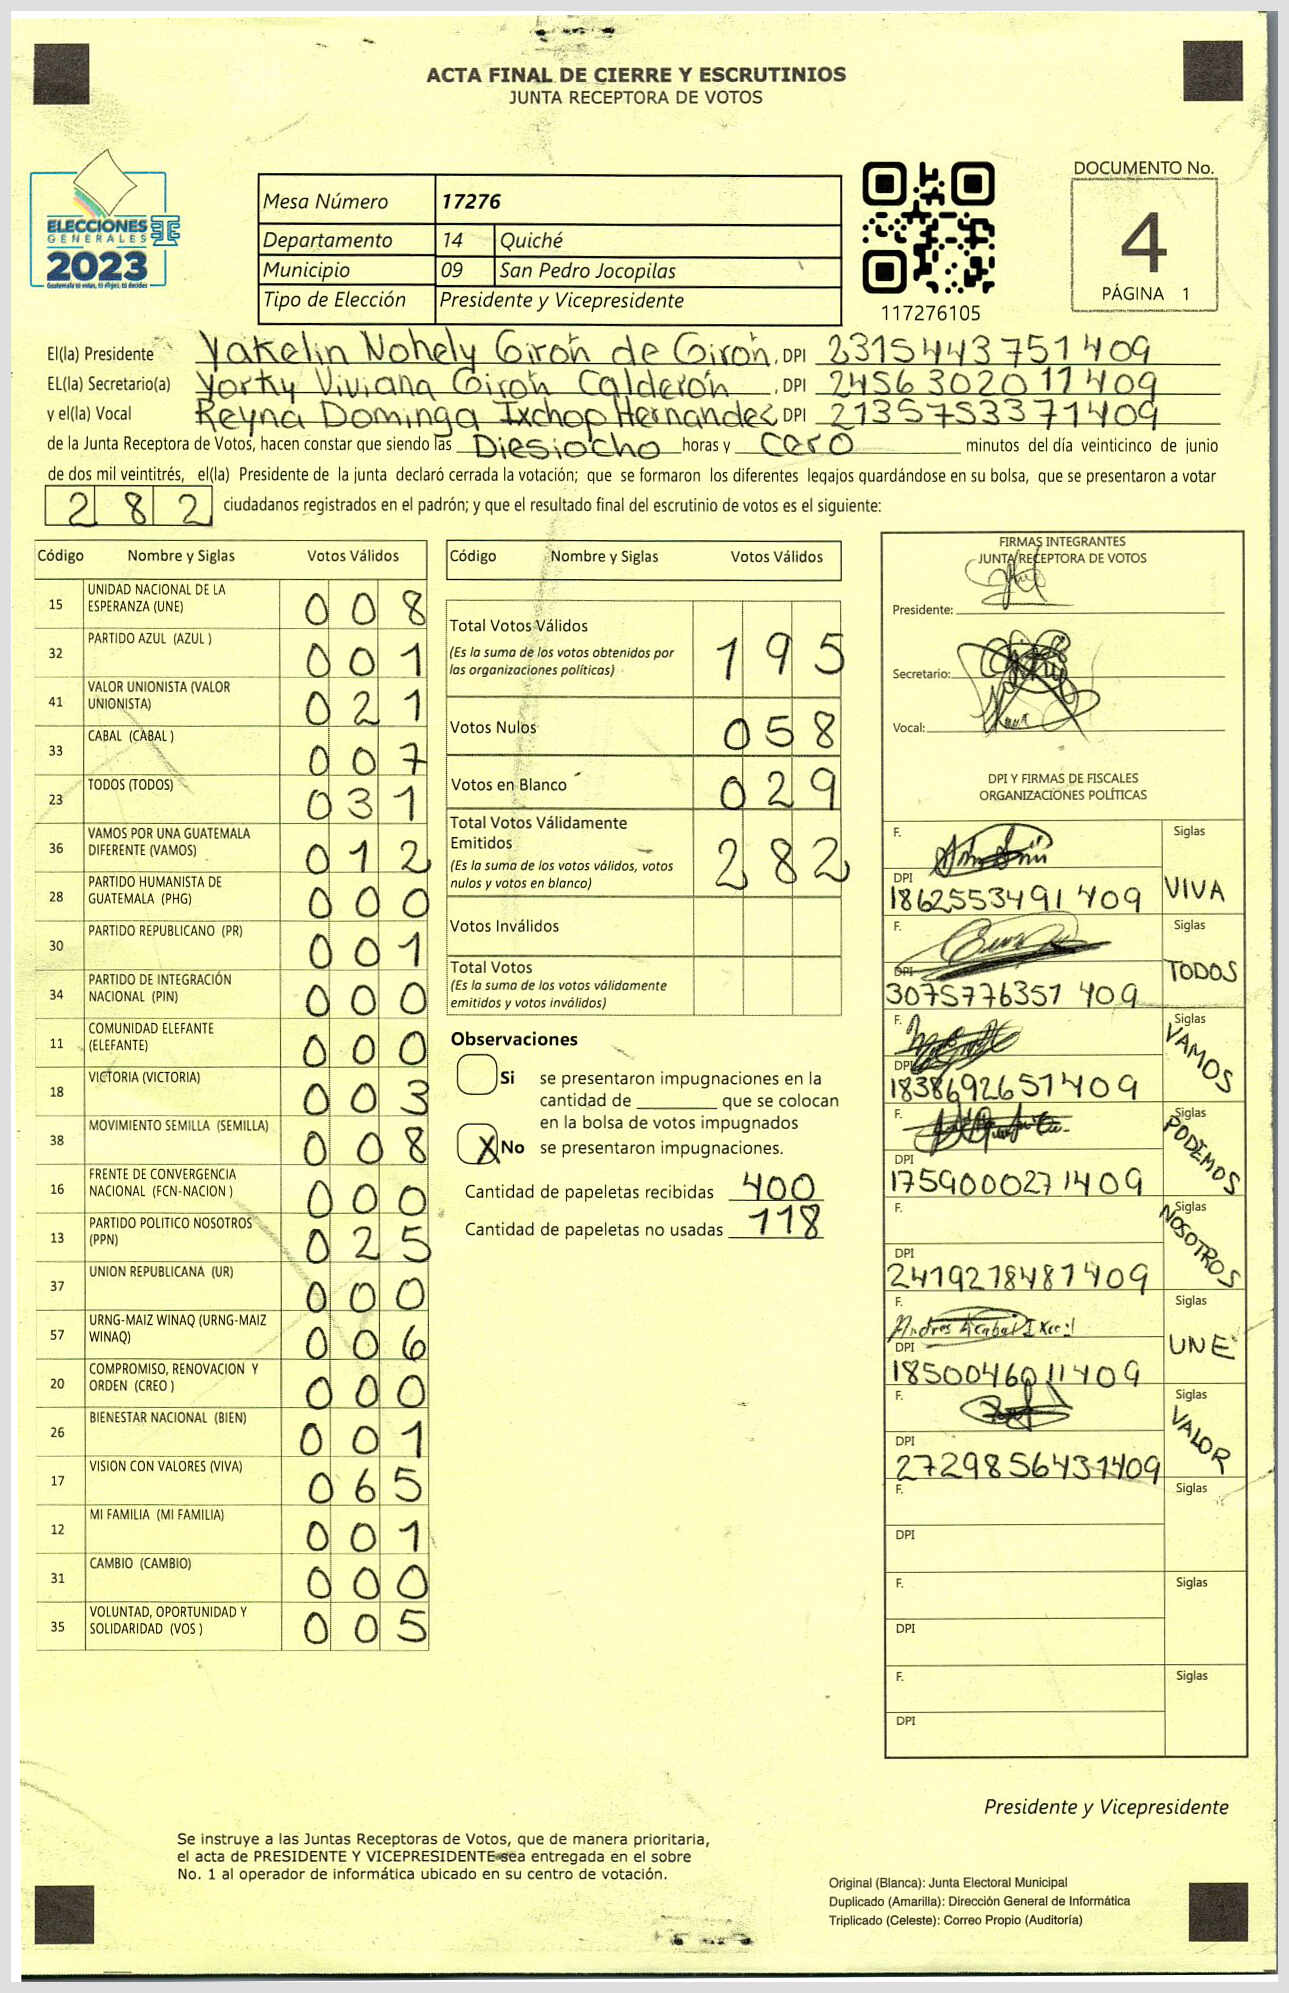 ACTA FINAL DE CIERRE Y ESCRUTINIOS
JUNTA RECEPTORA DE VOTOS
ELECCIONES
GENERALES
2023
Guatemala tú votas, tú eliges, tú decides
Mesa Número 17276
Departamento 14 Quiché
Municipio 09 San Pedro Jocopilas
Tipo de Elección Presidente y Vicepresidente
117276105
DOCUMENTO No.
4
PÁGINA 1
El(la) Presidente Yakelin Nohely Girón de Girón, DPI 2315443751409
EL(la) Secretario(a) Yorky Viviana Girón Calderón, DPI 2456302011409
y el(la) Vocal Reyna Dominga Ixchop Hernandez DPI 2135753371409
de la Junta Receptora de Votos, hacen constar que siendo las Diesiocho horas y cero minutos del día veinticinco de junio
de dos mil veintitrés, el(la) Presidente de la junta declaró cerrada la votación; que se formaron los diferentes legajos guardándose en su bolsa, que se presentaron a votar
282 ciudadanos registrados en el padrón; y que el resultado final del escrutinio de votos es el siguiente:
Código Nombre y Siglas Votos Válidos
15 UNIDAD NACIONAL DE LA ESPERANZA (UNE) 008
32 PARTIDO AZUL (AZUL ) 001
41 VALOR UNIONISTA (VALOR UNIONISTA) 021
33 CABAL (CABAL ) 007
23 TODOS (TODOS) 031
36 VAMOS POR UNA GUATEMALA DIFERENTE (VAMOS) 012
28 PARTIDO HUMANISTA DE GUATEMALA (PHG) 000
30 PARTIDO REPUBLICANO (PR) 001
34 PARTIDO DE INTEGRACIÓN NACIONAL (PIN) 000
11 COMUNIDAD ELEFANTE (ELEFANTE) 000
18 VICTORIA (VICTORIA) 003
38 MOVIMIENTO SEMILLA (SEMILLA) 008
16 FRENTE DE CONVERGENCIA NACIONAL (FCN-NACION ) 000
13 PARTIDO POLITICO NOSOTROS (PPN) 025
37 UNION REPUBLICANA (UR) 000
57 URNG-MAIZ WINAQ (URNG-MAIZ WINAQ) 006
20 COMPROMISO, RENOVACION Y ORDEN (CREO ) 000
26 BIENESTAR NACIONAL (BIEN) 001
17 VISION CON VALORES (VIVA) 065
12 MI FAMILIA (MI FAMILIA) 001
31 CAMBIO (CAMBIO) 000
35 VOLUNTAD, OPORTUNIDAD Y SOLIDARIDAD (VOS ) 005
Código Nombre y Siglas Votos Válidos
Total Votos Válidos 195
(Es la suma de los votos obtenidos por
las organizaciones políticas)
Votos Nulos 058
Votos en Blanco 029
Total Votos Válidamente
Emitidos 282
(Es la suma de los votos válidos, votos
nulos y votos en blanco)
Votos Inválidos
Total Votos
(Es la suma de los votos válidamente
emitidos y votos inválidos)
Observaciones
Si se presentaron impugnaciones en la
cantidad de ________ que se colocan
en la bolsa de votos impugnados
X No se presentaron impugnaciones.
Cantidad de papeletas recibidas 400
Cantidad de papeletas no usadas 118
FIRMAS INTEGRANTES
JUNTA RECEPTORA DE VOTOS
Presidente:
Secretario:
Vocal:
DPI Y FIRMAS DE FISCALES
ORGANIZACIONES POLÍTICAS
F. Siglas
DPI VIVA
1862553491409
F. Siglas
DPI TODOS
3075776351409
F. Siglas
DPI VAMOS
1838692651409
F. Siglas
DPI PODEMOS
1759000271409
F. Siglas
DPI NOSOTROS
2419218481409
F. Siglas
Andres
DPI UNE
1850046011409
F. Siglas
DPI VALOR
2729856431409
F. Siglas
DPI
F. Siglas
DPI
F. Siglas
DPI
Presidente y Vicepresidente
Se instruye a las Juntas Receptoras de Votos, que de manera prioritaria,
el acta de PRESIDENTE Y VICEPRESIDENTE sea entregada en el sobre
No. 1 al operador de informática ubicado en su centro de votación.
Original (Blanca): Junta Electoral Municipal
Duplicado (Amarilla): Dirección General de Informática
Triplicado (Celeste): Correo Propio (Auditoría)